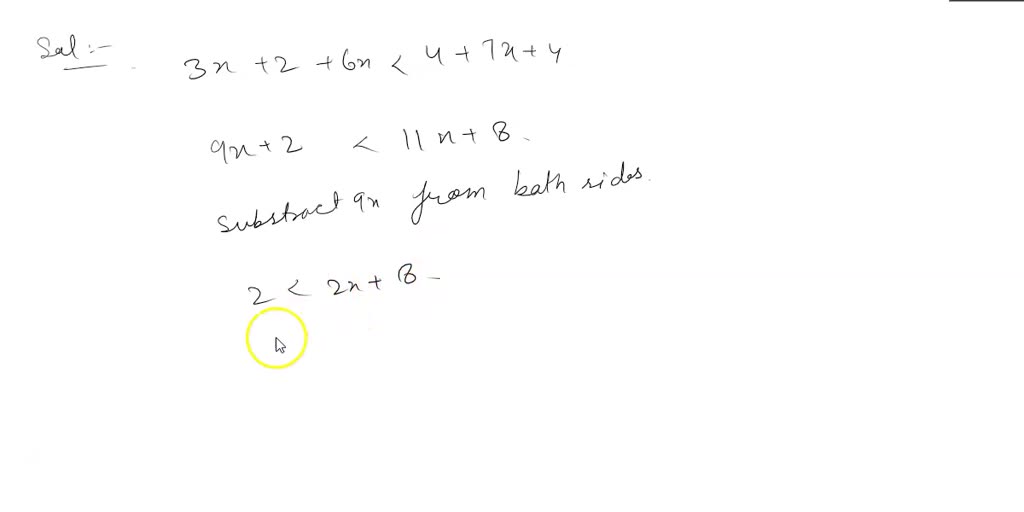 Sol :-
3x + 2 + 6x < 4 + 7x + 4
9x + 2 < 11x + 8.
substract 9x from both sides.
2 < 2x + 8 -